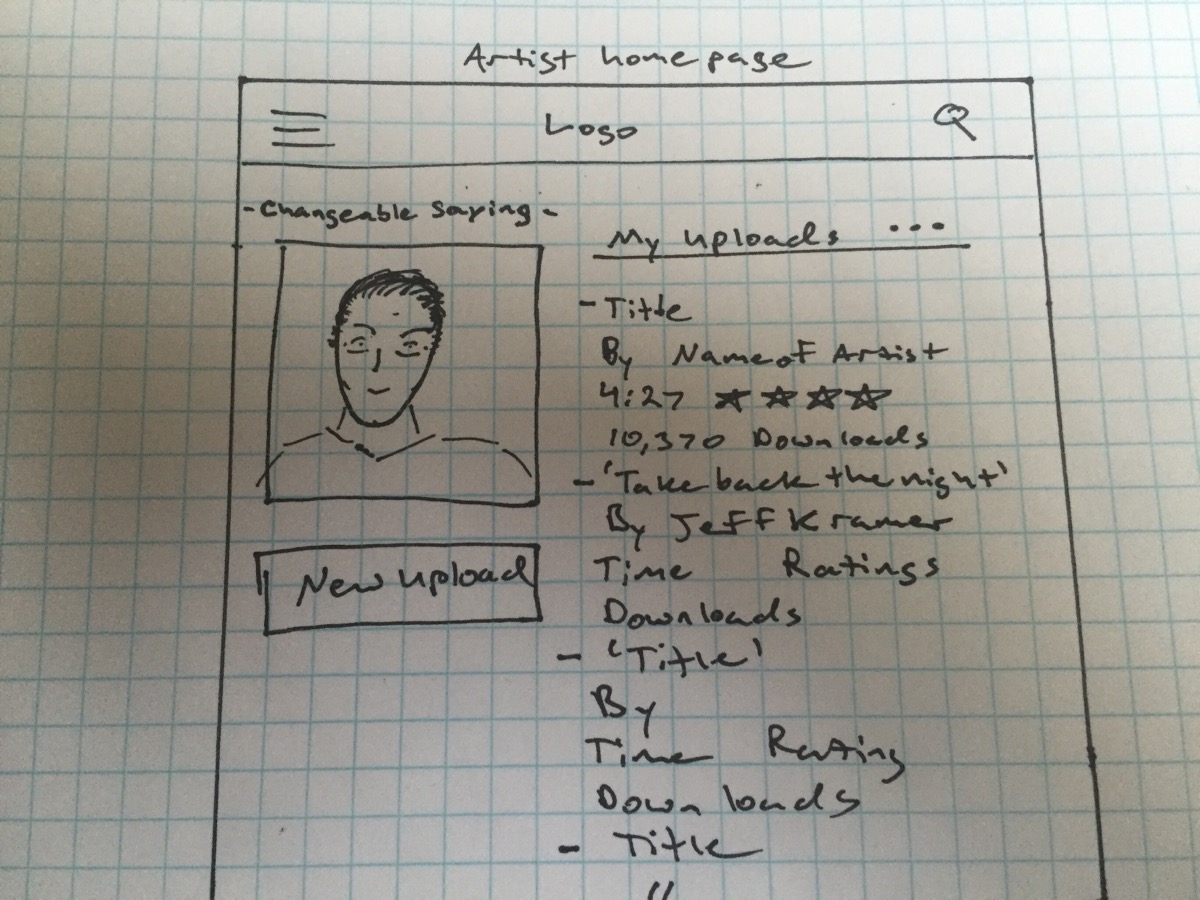 Artist home page
Logo
- Changeable Saying -
My uploads ...
- Title
By Name of Artist
4:27 ☆ ☆ ☆ ☆
10,370 Downloads
- 'Take back the night'
By Jeff Kramer
Time Ratings
Downloads
- 'Title'
By
Time Rating
Downloads
- Title
"
New upload